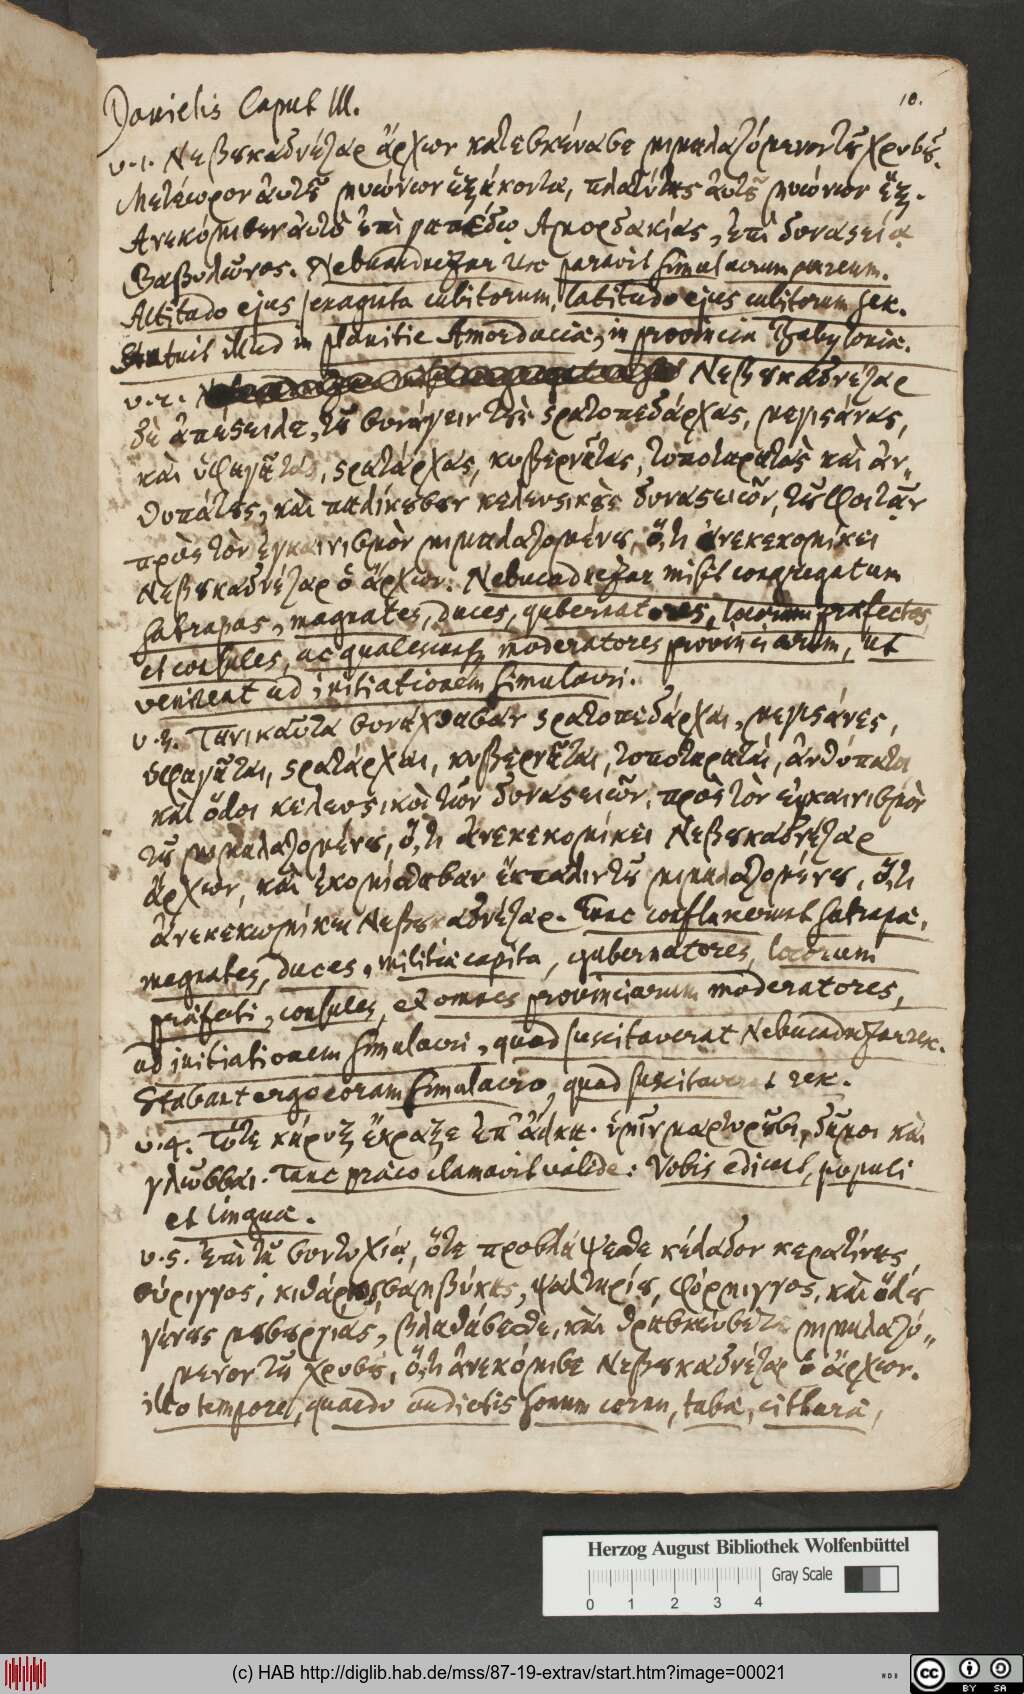 10.
Danielis Caput III.
v. 1. Νεβȣκαδνέζαρ ἄρχων κατεσκεύασε μιμαλαζόμενον τȣ͂ χρυσȣ͂.
Μετέωρον ἀυτȣ͂ πυώνων ἑξάκοντα, πλατύτης ἀυτȣ͂ πυώνων ἕξ.
Ἀνεκόμισεν ἀυτὸ ἐπὶ γαπέδῳ Ἀμορδακίας, ἐπὶ δυναςείᾳ
Βαβυλῶνος. Nebucadnezar rex paravit simulacrum aureum.
Altitudo ejus sexaginta cubitorum, latitudo ejus cubitorum sex.
Statuit illud in planitie Amordaciae, in provincia Babyloniae.
v. 2. Νεβȣκαδνέζαρ
δὲ ἀπέςειλε, τȣ͂ συνάγειν τȣ̀ς ςρατοπεδάρχας, μεγιςάνας,
καὶ ὑφαγητάς, ςρατάρχας, κυβερνήτας, τοποταρατὰς καὶ ἀν-
θυπάτȣς, καὶ παλίκȣσον κελευςικȣ̀ς δυναςειῶν, τȣ͂ φοιτᾶν
πρὸς τὸν ἐγκαινισμὸν μιμαλαζομένȣ, ὅ,τι ἀνεκεκομίκει
Νεβȣκαδνέζαρ ὁ ἄρχων. Nebucadnezar misit congregatum
satrapas, magnates, duces, gubernatores, locorum praefectos
et consules, ac qualescunque moderatores provinciarum, ut
venirent ad initiationem simulacri.
v. 3. Τηνικαῦτα συνήχθασαν ςρατοπεδάρχαι, μεγιςάνες,
ὑφαγῆται, ςρατάρχαι, κυβερνῆται, τοποταρατάι, ἀνθύπατοι
καὶ ὅλοι κελευςικὸι τῶν δυναςειῶν, πρὸς τὸν ἐγκαινισμὸν
τȣ͂ μιμαλαζομένȣ, ὅ,τι ἀνεκεκομίκει Νεβȣκαδνέζαρ
ἄρχων, καὶ ἐκομίσθασαν ἔκπαλιν τȣ͂ μιμαλαζομένȣ, ὅ,τι
ἀνεκεκομίκει Νεβȣκαδνέζαρ. Tunc conflaverunt satrapae,
magnates, duces, militiae capita, gubernatores, locorum
praefecti, consules, et omnes provinciarum moderatores,
ad initiationem simulacri, quod suscitaverat Nebucadnezar rex.
Stabant ergo coram simulacro, quod suscitaverat rex.
v. 4. Τότε κήρυξ ἔκραξε ἐπ' ἀλκῇ. ὑμῖν μαρτυρȣ͂σι, δῆμοι καὶ
γλῶσσαι. Tunc praeco clamavit valide: Vobis edicunt, populi
et linguae.
v. 5. Ἐπὶ τῇ συντυχίᾳ, ὅτε προβλέψεσθε κέλαδον κερατίνης,
σύριγγος, κιθάρης, σαμβύκης, ψαλτηρίȣ, φόρμιγγος, καὶ ὅλȣ
γένȣς μȣσȣργίας, βλαθάσεσθε, καὶ θρασκεύσετε μιμαλαζό-
μενον τȣ͂ χρυσȣ͂, ὅ,τι ἀνεκόμισε Νεβȣκαδνέζαρ ὁ ἄρχων.
illo tempore, quando audietis sonum cornu, tubae, citharae,
Herzog August Bibliothek Wolfenbüttel
Gray Scale
0 1 2 3 4
(c) HAB http://diglib.hab.de/mss/87-19-extrav/start.htm?image=00021
cc BY SA